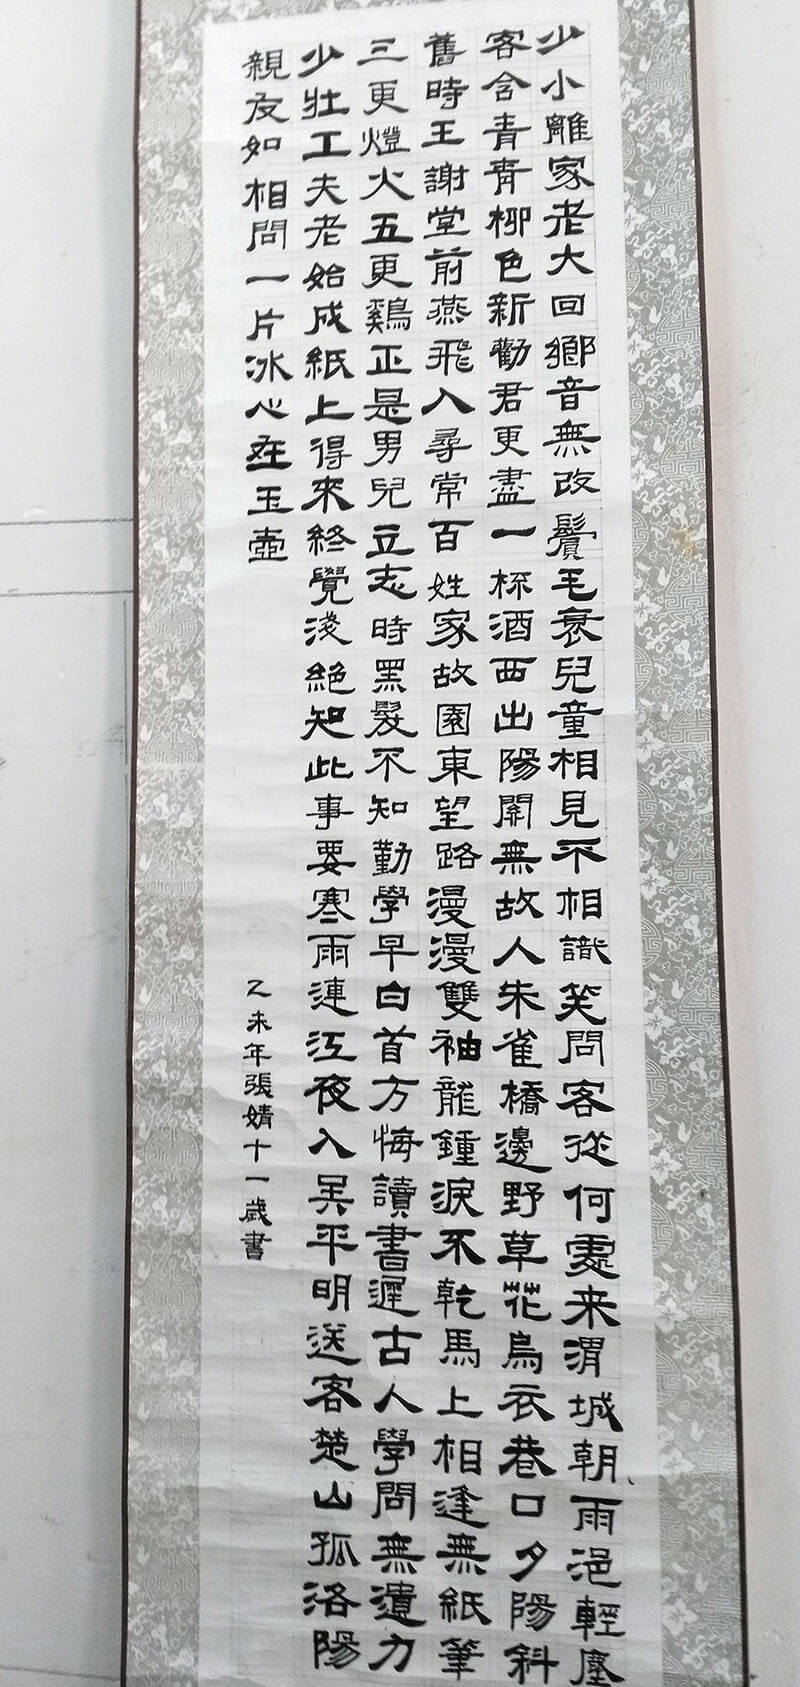 少小離家老大回鄉音無改鬢毛衰兒童相見不相識笑問客從何處来渭城朝雨浥輕塵
客舍青青柳色新勸君更盡一杯酒西出陽關無故人朱雀橋邊野草花烏衣巷口夕陽斜
舊時王謝堂前燕飛入尋常百姓家故園東望路漫漫雙袖龍鍾淚不乾馬上相逢無紙筆
三更燈火五更鷄正是男兒立志時黑髮不知勤學早白首方悔讀書遲古人學問無遺力
少壯工夫老始成紙上得來終覺淺絕知此事要寒雨連江夜入吴平明送客楚山孤洛陽
親友如相問一片冰心在玉壺
乙未年張婧十一歲書